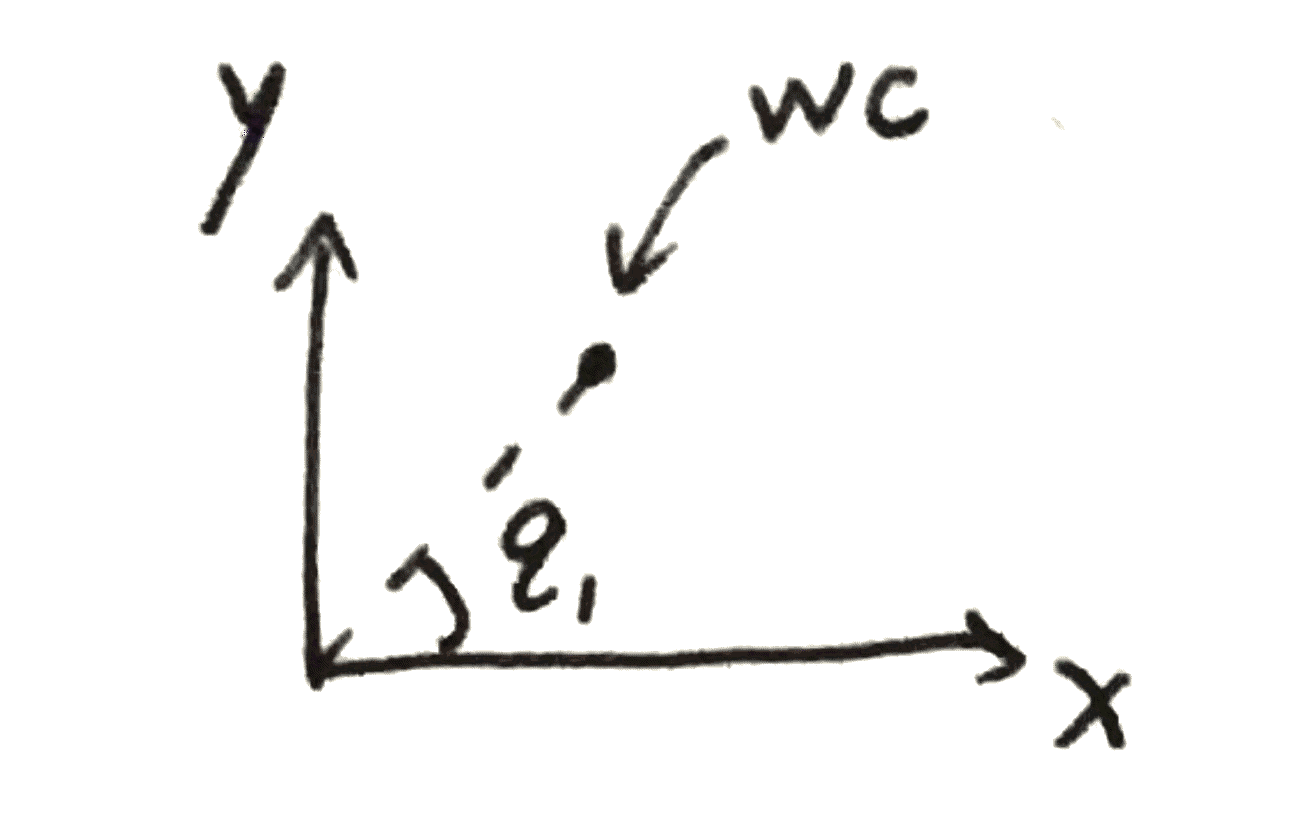 y
WC
q1
x